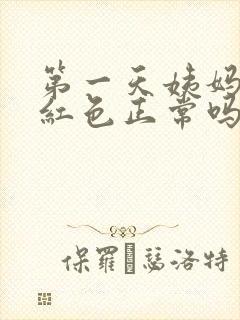 第一天姨妈
紅色正常吗
保羅·瑟洛特